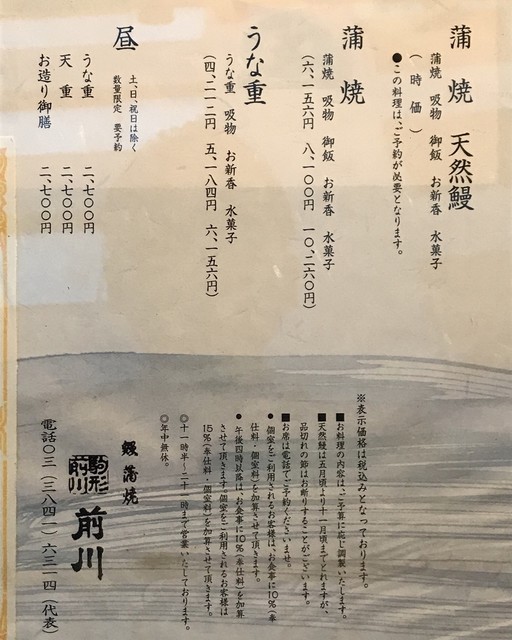 蒲焼 天然鰻
蒲焼 吸物 御飯 お新香 水菓子
（時価）
●この料理は、ご予約が必要となります。
蒲焼
蒲焼 吸物 御飯 お新香 水菓子
（六、一五六円 八、一〇〇円 一〇、二六〇円）
うな重
うな重 吸物 お新香 水菓子
（四、二一二円 五、一八四円 六、一五六円）
昼
土、日、祝日は除く
数量限定 要予約
うな重 二、七〇〇円
天重 二、七〇〇円
お造り御膳 二、七〇〇円
※表示価格は税込みとなっております。
■お料理の内容は、ご予算に応じ調製いたします。
■天然鰻は五月頃より十一月頃までとれますが、
品切れの節はお断りすることがございます。
■お席は電話でご予約くださいませ。
●個室をご利用されるお客様は、お食事に10％（奉
仕料・個室料）を加算させて頂きます。
●午後四時以降は、お食事に10％（奉仕料）を加算
させて頂きます。個室をご利用されるお客様は
15％（奉仕料・個室料）を加算させて頂きます。
○十一時半〜二十一時まで営業いたしております。
○年中無休。
鰻 蒲焼
駒形
前川
前川
電話〇三（三八四一）六三一四（代表）